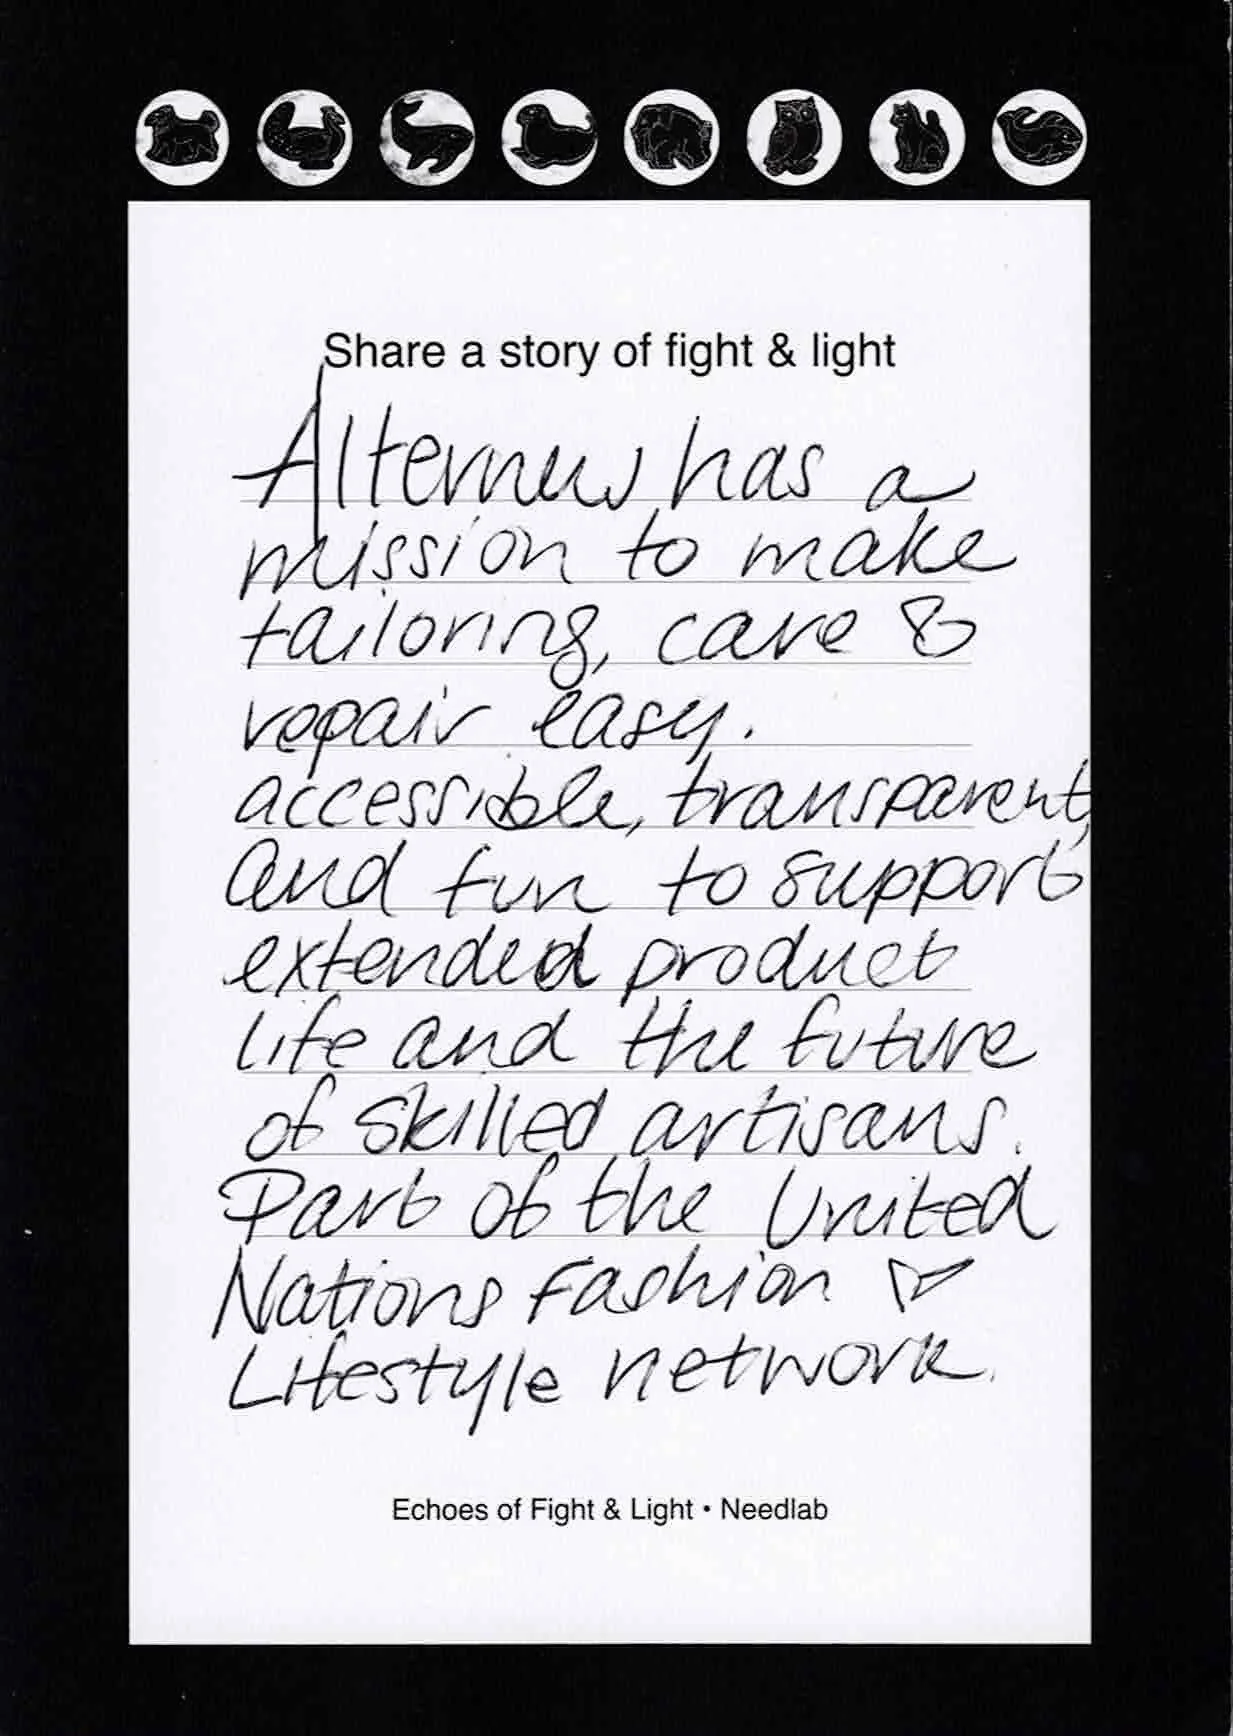 Share a story of fight & light
Alternew has a
mission to make
tailoring, care &
repair easy.
accessible, transparent,
and fun to support
extended product
life and the future
of skilled artisans.
Part of the United
Nations Fashion &
Lifestyle network.
Echoes of Fight & Light • Needlab